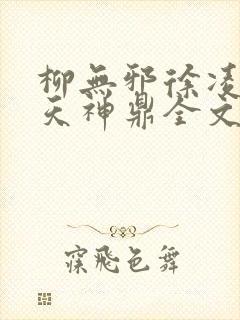 柳無邪徐凌
天神鼎全文
寐飛色舞